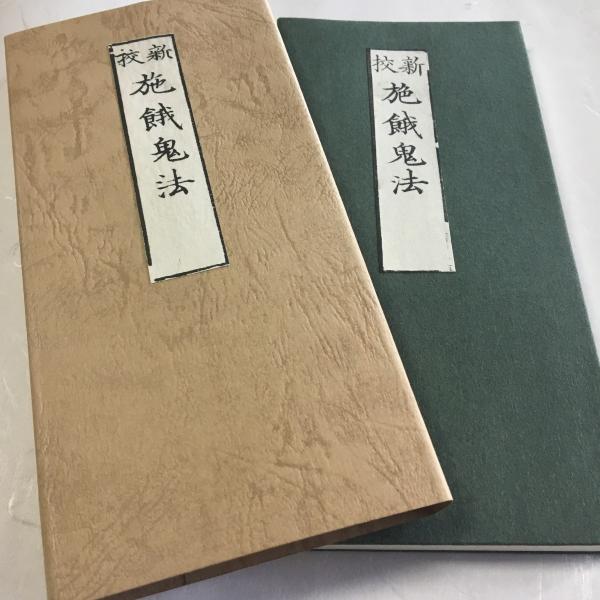 新校
施餓鬼法
新校
施餓鬼法